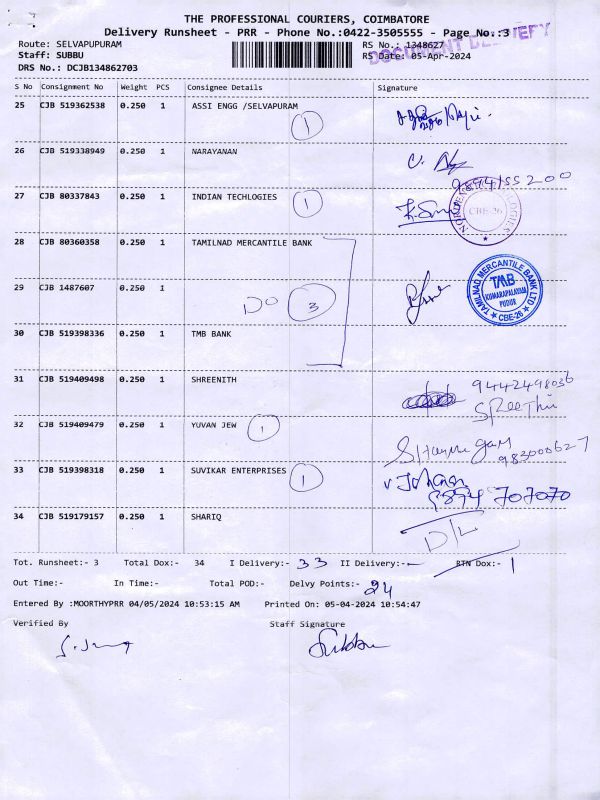 THE PROFESSIONAL COURIERS, COIMBATORE
Delivery Runsheet - PRR - Phone No.:0422-3505555 - Page No.:3
DOCUMENT DELIVERY
Route: SELVAPUPURAM RS No.: 1348627
Staff: SUBBU RS Date: 05-Apr-2024
DRS No.: DCJB134862703
S No Consignment No Weight PCS Consignee Details Signature
25 CJB 519362538 0.250 1 ASSI ENGG /SELVAPURAM
1
26 CJB 519338949 0.250 1 NARAYANAN
9874155200
27 CJB 80337843 0.250 1 INDIAN TECHLOGIES 1
CBE-26
28 CJB 80360358 0.250 1 TAMILNAD MERCANTILE BANK
TAMILNAD MERCANTILE BANK LTD
TMB
KUMARAPALAYAM
PUDUR
CBE-26
29 CJB 1487607 0.250 1 DO 3
30 CJB 519398336 0.250 1 TMB BANK
31 CJB 519409498 0.250 1 SHREENITH 9442498036
SReeThii
32 CJB 519409479 0.250 1 YUVAN JEW 1
983000627
33 CJB 519398318 0.250 1 SUVIKAR ENTERPRISES 1
9894 707070
34 CJB 519179157 0.250 1 SHARIQ D/L
Tot. Runsheet:- 3 Total Dox:- 34 I Delivery:- 33 II Delivery:- RTN Dox:- 1
Out Time:- In Time:- Total POD:- Delvy Points:- 24
Entered By :MOORTHYPRR 04/05/2024 10:53:15 AM Printed On: 05-04-2024 10:54:47
Verified By Staff Signature
Subbu